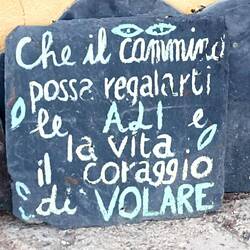 Che il cammino
possa regalarti
le ALI e
la vita
il coraggio
di VOLARE